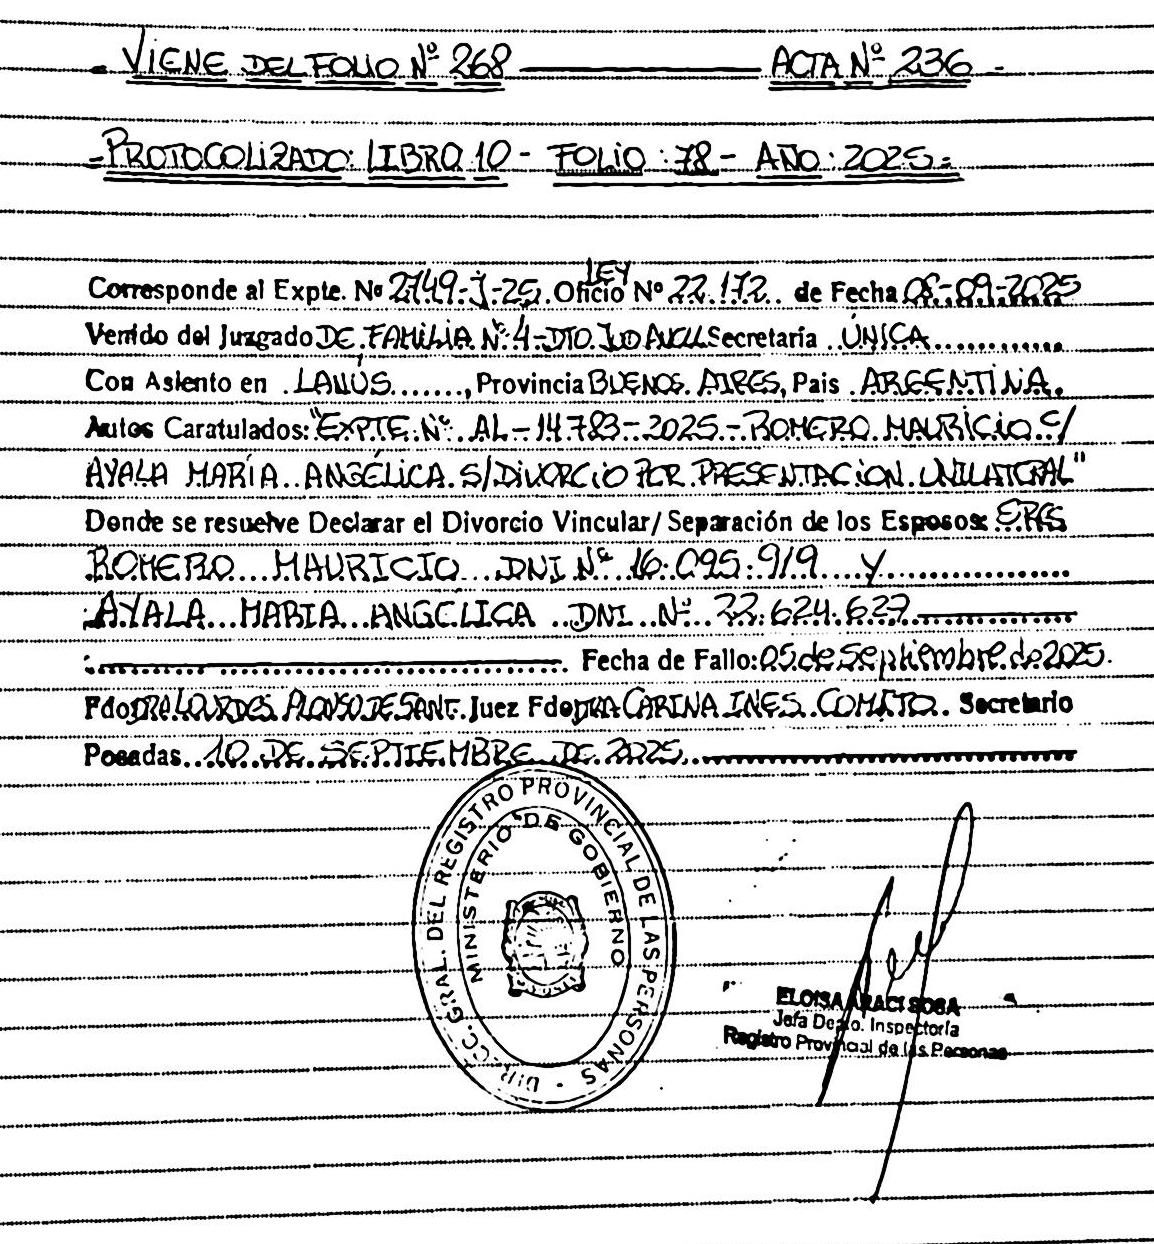 VIENE DEL FOLIO Nº 268 ACTA Nº 236
=PROTOCOLIZADO: LIBRO 10 - FOLIO: 78 - AÑO: 2025=
Corresponde al Expte. Nº 2749-J-25. Oficio LEY Nº 22.172.. de Fecha 08-09-2025
Venido del Juzgado DE FAMILIA Nº 4-DTO. JUD AVELL Secretaría .ÚNICA.............
Con Asiento en .LANÚS......., Provincia BUENOS AIRES, Pais .ARGENTINA.
Autos Caratulados: "EXPTE. Nº AL-14783-2025-ROMERO MAURICIO C/
AYALA MARÍA ANGÉLICA S/DIVORCIO POR PRESENTACION UNILATERAL"
Donde se resuelve Declarar el Divorcio Vincular/ Separación de los Esposos: SRES
ROMERO...MAURICIO...DNI Nº 16.095.919...Y...................
AYALA...MARIA...ANGELICA..DNI..Nº..22.624.627
Fecha de Fallo: 05 de Septiembre de 2025.
Fdo DRA LOURDES ALONSO DE SANT. Juez Fdo DRA CARINA INES COMATO.. Secretario
Posadas..10..DE..SEPTIEMBRE..DE..2025
DIRECC. GRAL. DEL REGISTRO PROVINCIAL DE LAS PERSONAS -
MINISTERIO DE GOBIERNO
ELOISA ARACI SOSA
Jefa Depto. Inspectoría
Registro Provincial de las Personas